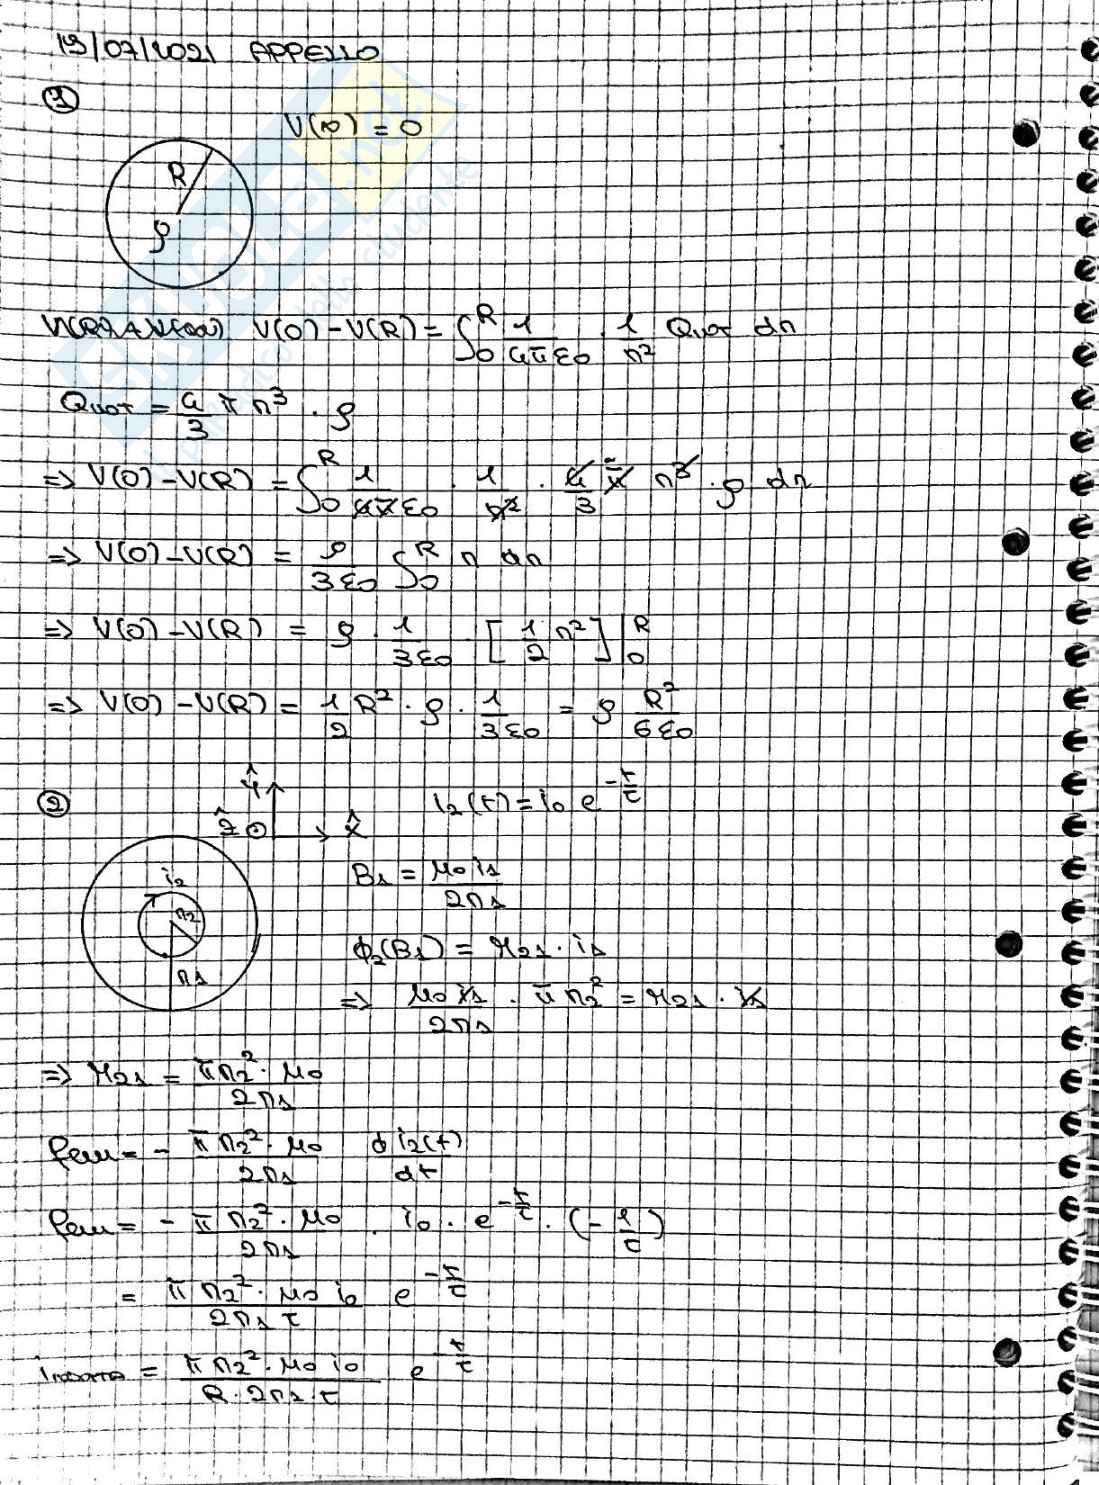 19/07/2021 APPELLO
①
V(∞) = 0
R
ρ
V(0) - V(R) = ∫₀ᴿ 1/(4πε₀) · 1/r² Qint dr
Qint = 4/3 π r³ · ρ
=> V(0) - V(R) = ∫₀ᴿ 1/(4πε₀) · 1/r² · 4/3 π r³ · ρ dr
=> V(0) - V(R) = ρ/(3ε₀) ∫₀ᴿ r dr
=> V(0) - V(R) = ρ · 1/(3ε₀) · [1/2 r²]|₀ᴿ
=> V(0) - V(R) = 1/2 R² · ρ · 1/(3ε₀) = ρ R²/(6ε₀)
②
ŷ
ẑ x̂
i₂(t) = i₀ e^(-t/τ)
i₂
r₂
r₁
B₁ = μ₀i₁/(2r₁)
Φ₂(B₁) = M₂₁ · i₁
=> μ₀i₁/(2r₁) · π r₂² = M₂₁ · i₁
=> M₂₁ = πr₂² · μ₀/(2r₁)
fem = - π r₂² · μ₀/(2r₁) d i₂(t)/dt
fem = - π r₂² · μ₀/(2r₁) · i₀ · e^(-t/τ) · (-1/τ)
= π r₂² · μ₀ i₀/(2r₁ τ) e^(-t/τ)
indotta = π r₂² · μ₀ i₀/(R · 2r₁ · τ) e^(-t/τ)